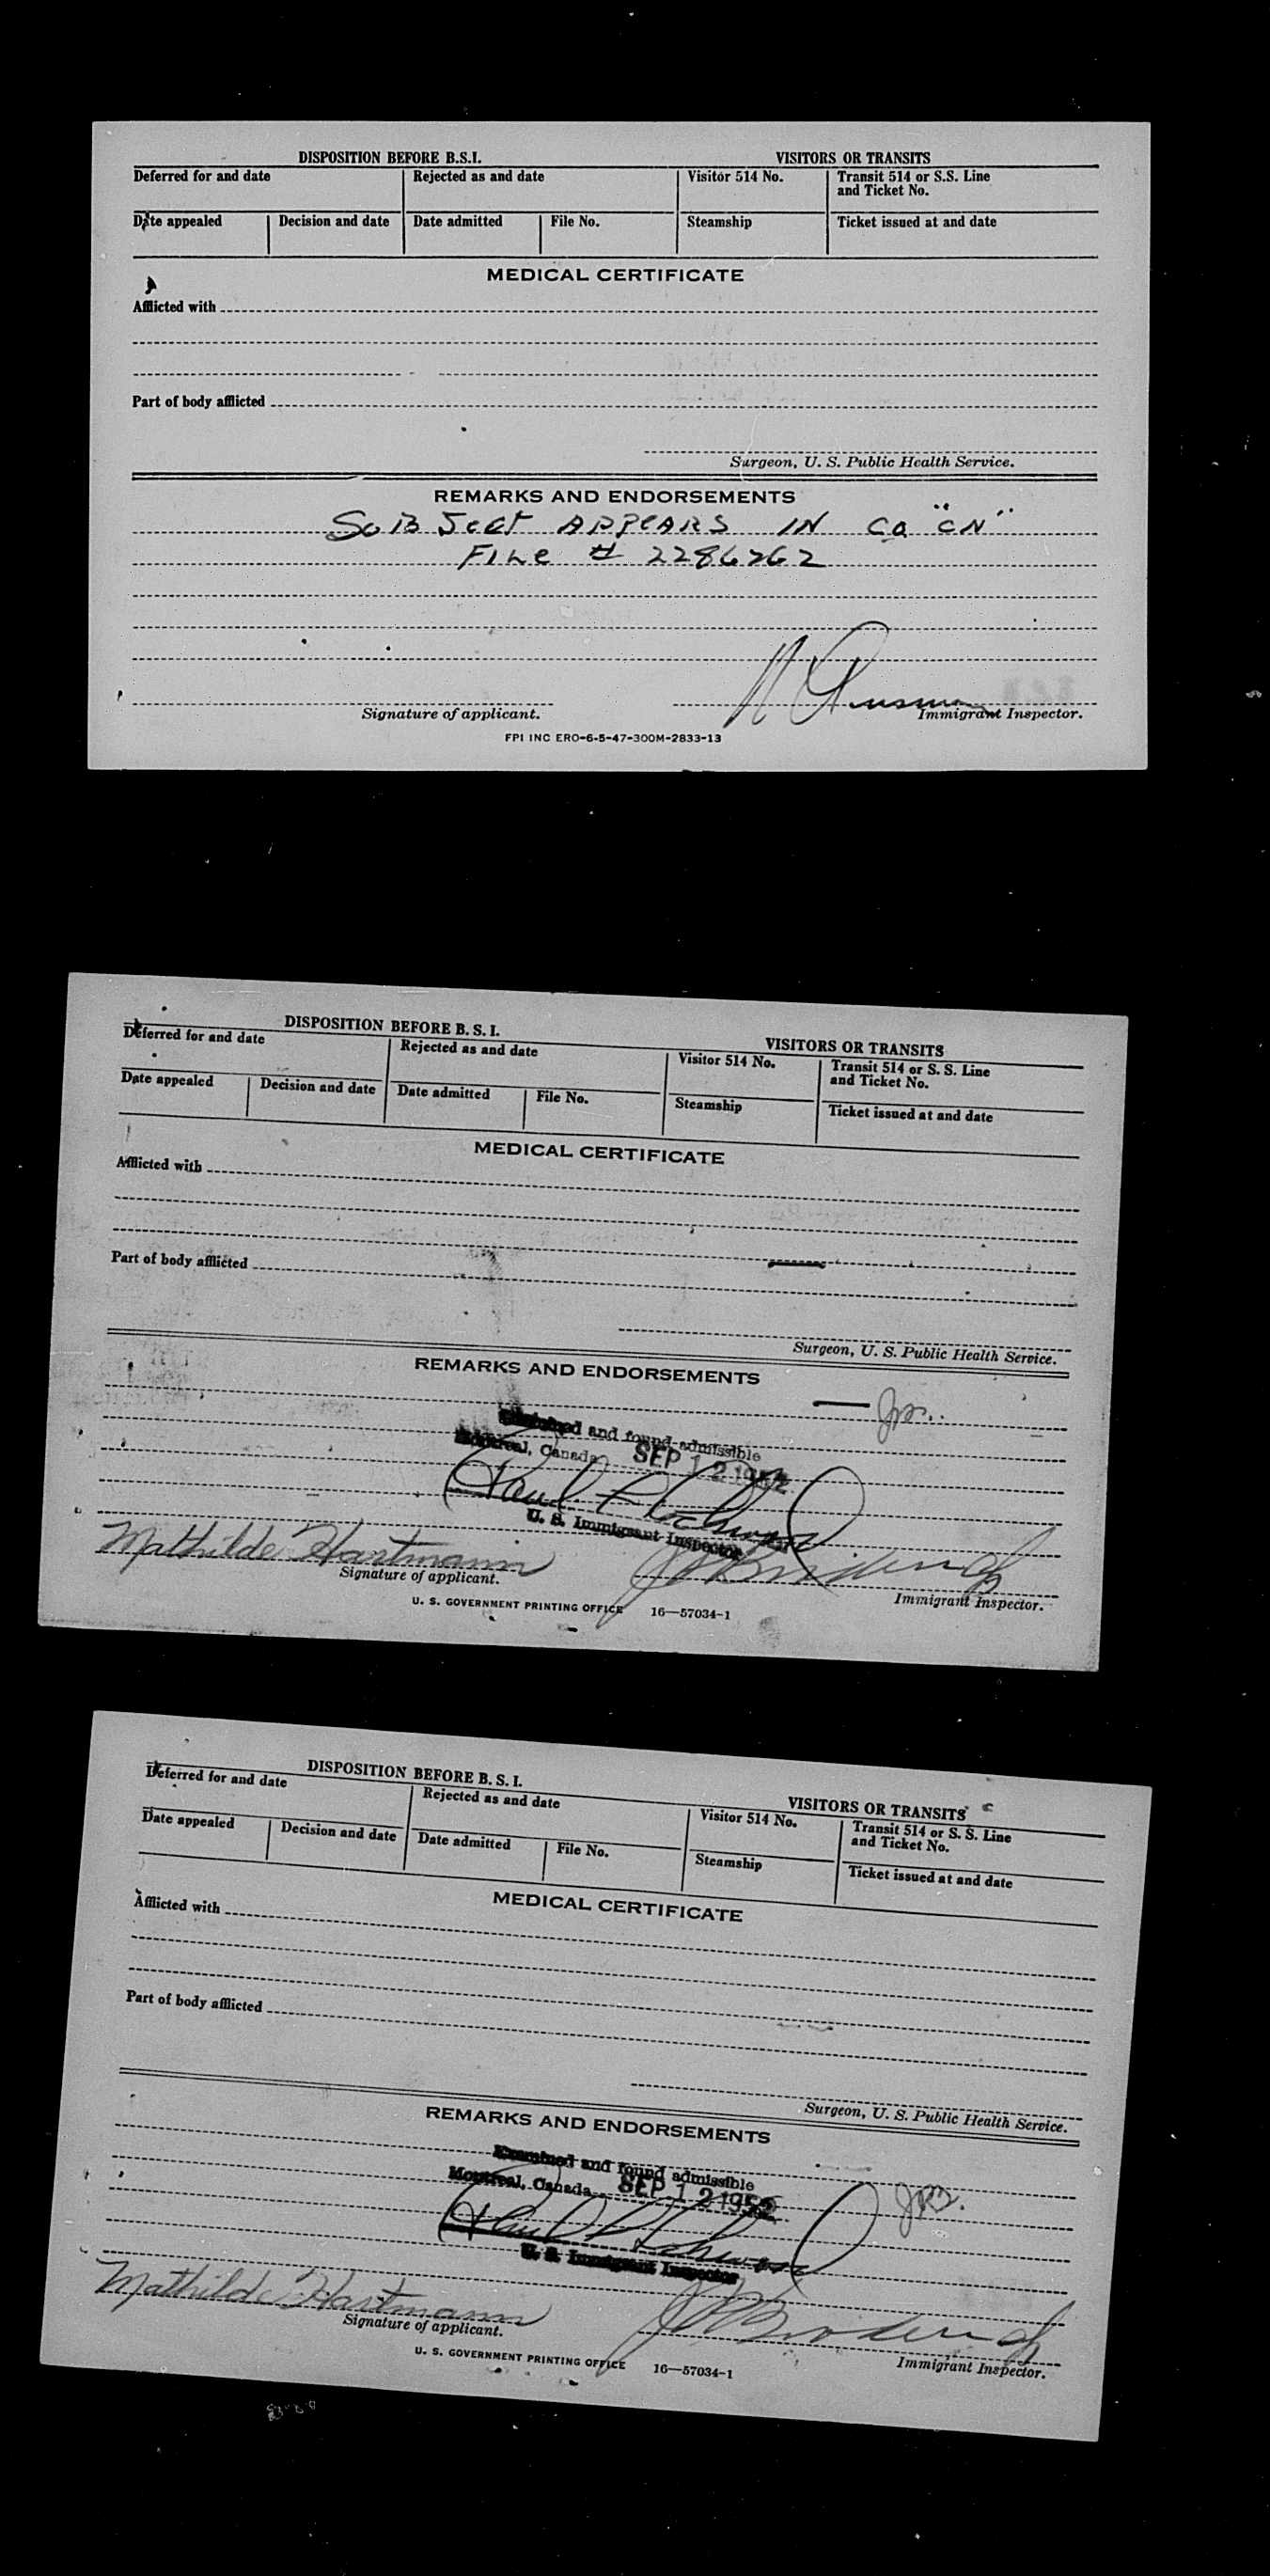 DISPOSITION BEFORE B.S.I. VISITORS OR TRANSITS
Deferred for and date Rejected as and date Visitor 514 No. Transit 514 or S.S. Line
and Ticket No.
Date appealed Decision and date Date admitted File No. Steamship Ticket issued at and date
MEDICAL CERTIFICATE
Afflicted with
Part of body afflicted
Surgeon, U. S. Public Health Service.
REMARKS AND ENDORSEMENTS
SUBJECT APPEARS IN CO "CN"
FILE # 2286262
Signature of applicant. Immigrant Inspector.
FPI INC ERO-6-5-47-300M-2833-13
DISPOSITION BEFORE B. S. I. VISITORS OR TRANSITS
Deferred for and date Rejected as and date Visitor 514 No. Transit 514 or S. S. Line
and Ticket No.
Date appealed Decision and date Date admitted File No. Steamship Ticket issued at and date
MEDICAL CERTIFICATE
Afflicted with
Part of body afflicted
Surgeon, U. S. Public Health Service.
REMARKS AND ENDORSEMENTS
Examined and found admissible
Montreal, Canada SEP 12 1952
Paul
U. S. Immigrant Inspector
Mathilde Hartmann
Signature of applicant. Immigrant Inspector.
U. S. GOVERNMENT PRINTING OFFICE 16—57034-1
DISPOSITION BEFORE B. S. I. VISITORS OR TRANSITS
Deferred for and date Rejected as and date Visitor 514 No. Transit 514 or S. S. Line
and Ticket No.
Date appealed Decision and date Date admitted File No. Steamship Ticket issued at and date
MEDICAL CERTIFICATE
Afflicted with
Part of body afflicted
Surgeon, U. S. Public Health Service.
REMARKS AND ENDORSEMENTS
Examined and found admissible
Montreal, Canada SEP 12 1952
Paul
U. S. Immigrant Inspector
Mathilde Hartmann
Signature of applicant. Immigrant Inspector.
U. S. GOVERNMENT PRINTING OFFICE 16—57034-1